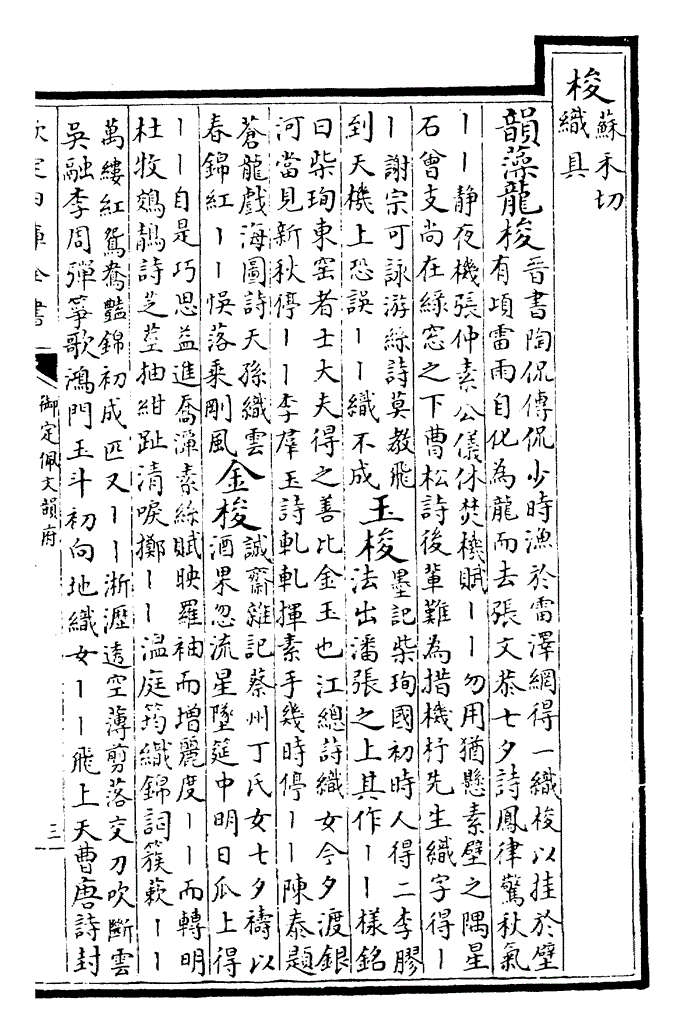 梭
蘇禾切
織具
韻藻龍梭
晉書陶侃傳侃少時漁於雷澤網得一織梭以挂於壁
有項雷雨自化為龍而去張文恭七夕詩鳳律驚秋氣
丨丨静夜機張仲素公儀休焚機賦丨丨勿用猶懸素壁之隅星
石會支尚在緑窓之下曹松詩後輩難為措機杼先生織字得丨
丨謝宗可詠游絲詩莫教飛
到天機上恐誤丨丨織不成
玉梭
墨記柴珣國初時人得二李膠
法出潘張之上其作丨丨樣銘
曰柴珣東窑者士大夫得之善比金玉也江總詩織女今夕渡銀
河當見新秋停丨丨李羣玉詩軋軋揮素手幾時停丨丨陳泰題
蒼龍戲海圖詩天孫織雲
春錦紅丨丨悮落乗剛風
金梭
誠齋雜記蔡州丁氏女七夕禱以
酒果忽流星墜筵中明日瓜上得
丨丨自是巧思益進喬潭素絲賦映羅袖而增麗度丨丨而轉明
杜牧鵁鶄詩芝莖抽紺趾清唳擲丨丨温庭筠織錦詞簇蔌丨丨
萬縷紅鴛鴦豔錦初成匹又丨丨淅瀝透空薄剪落交刀吹斷雲
吳融李周彈箏歌鴻門玉斗初向地織女丨丨飛上天曹唐詩封
欽定四庫全書
御定佩文韻府
三